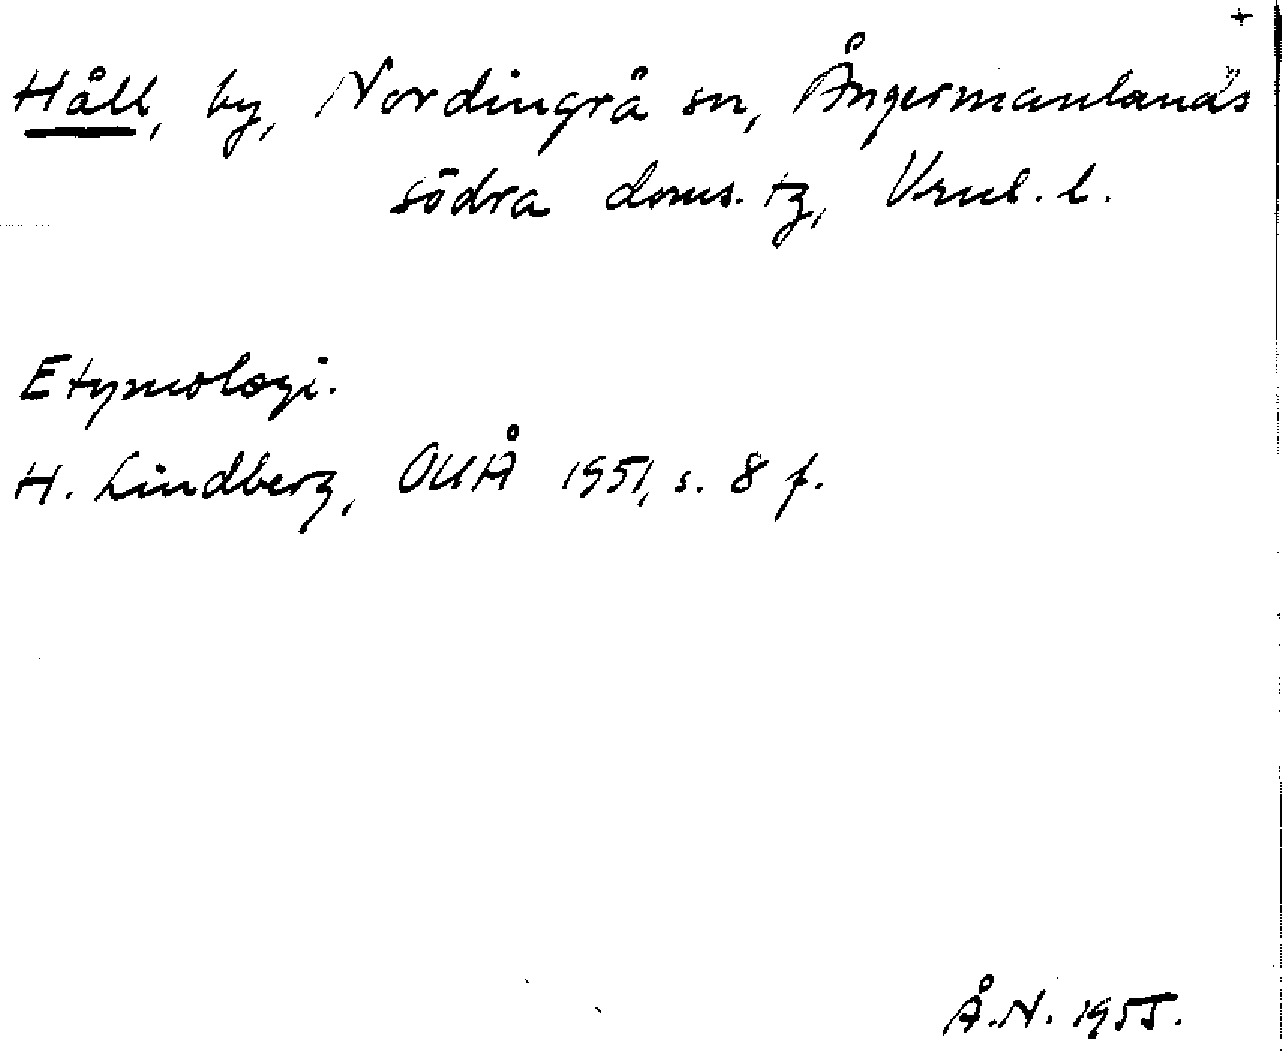 +
Håll, by, Nordingrå sn, Ångermanlands
södra doms. tg, Vrnl. l.
Etymologi.
H. Lindberg, OUÅ 1951, s. 8 f.
Å.N. 1955.